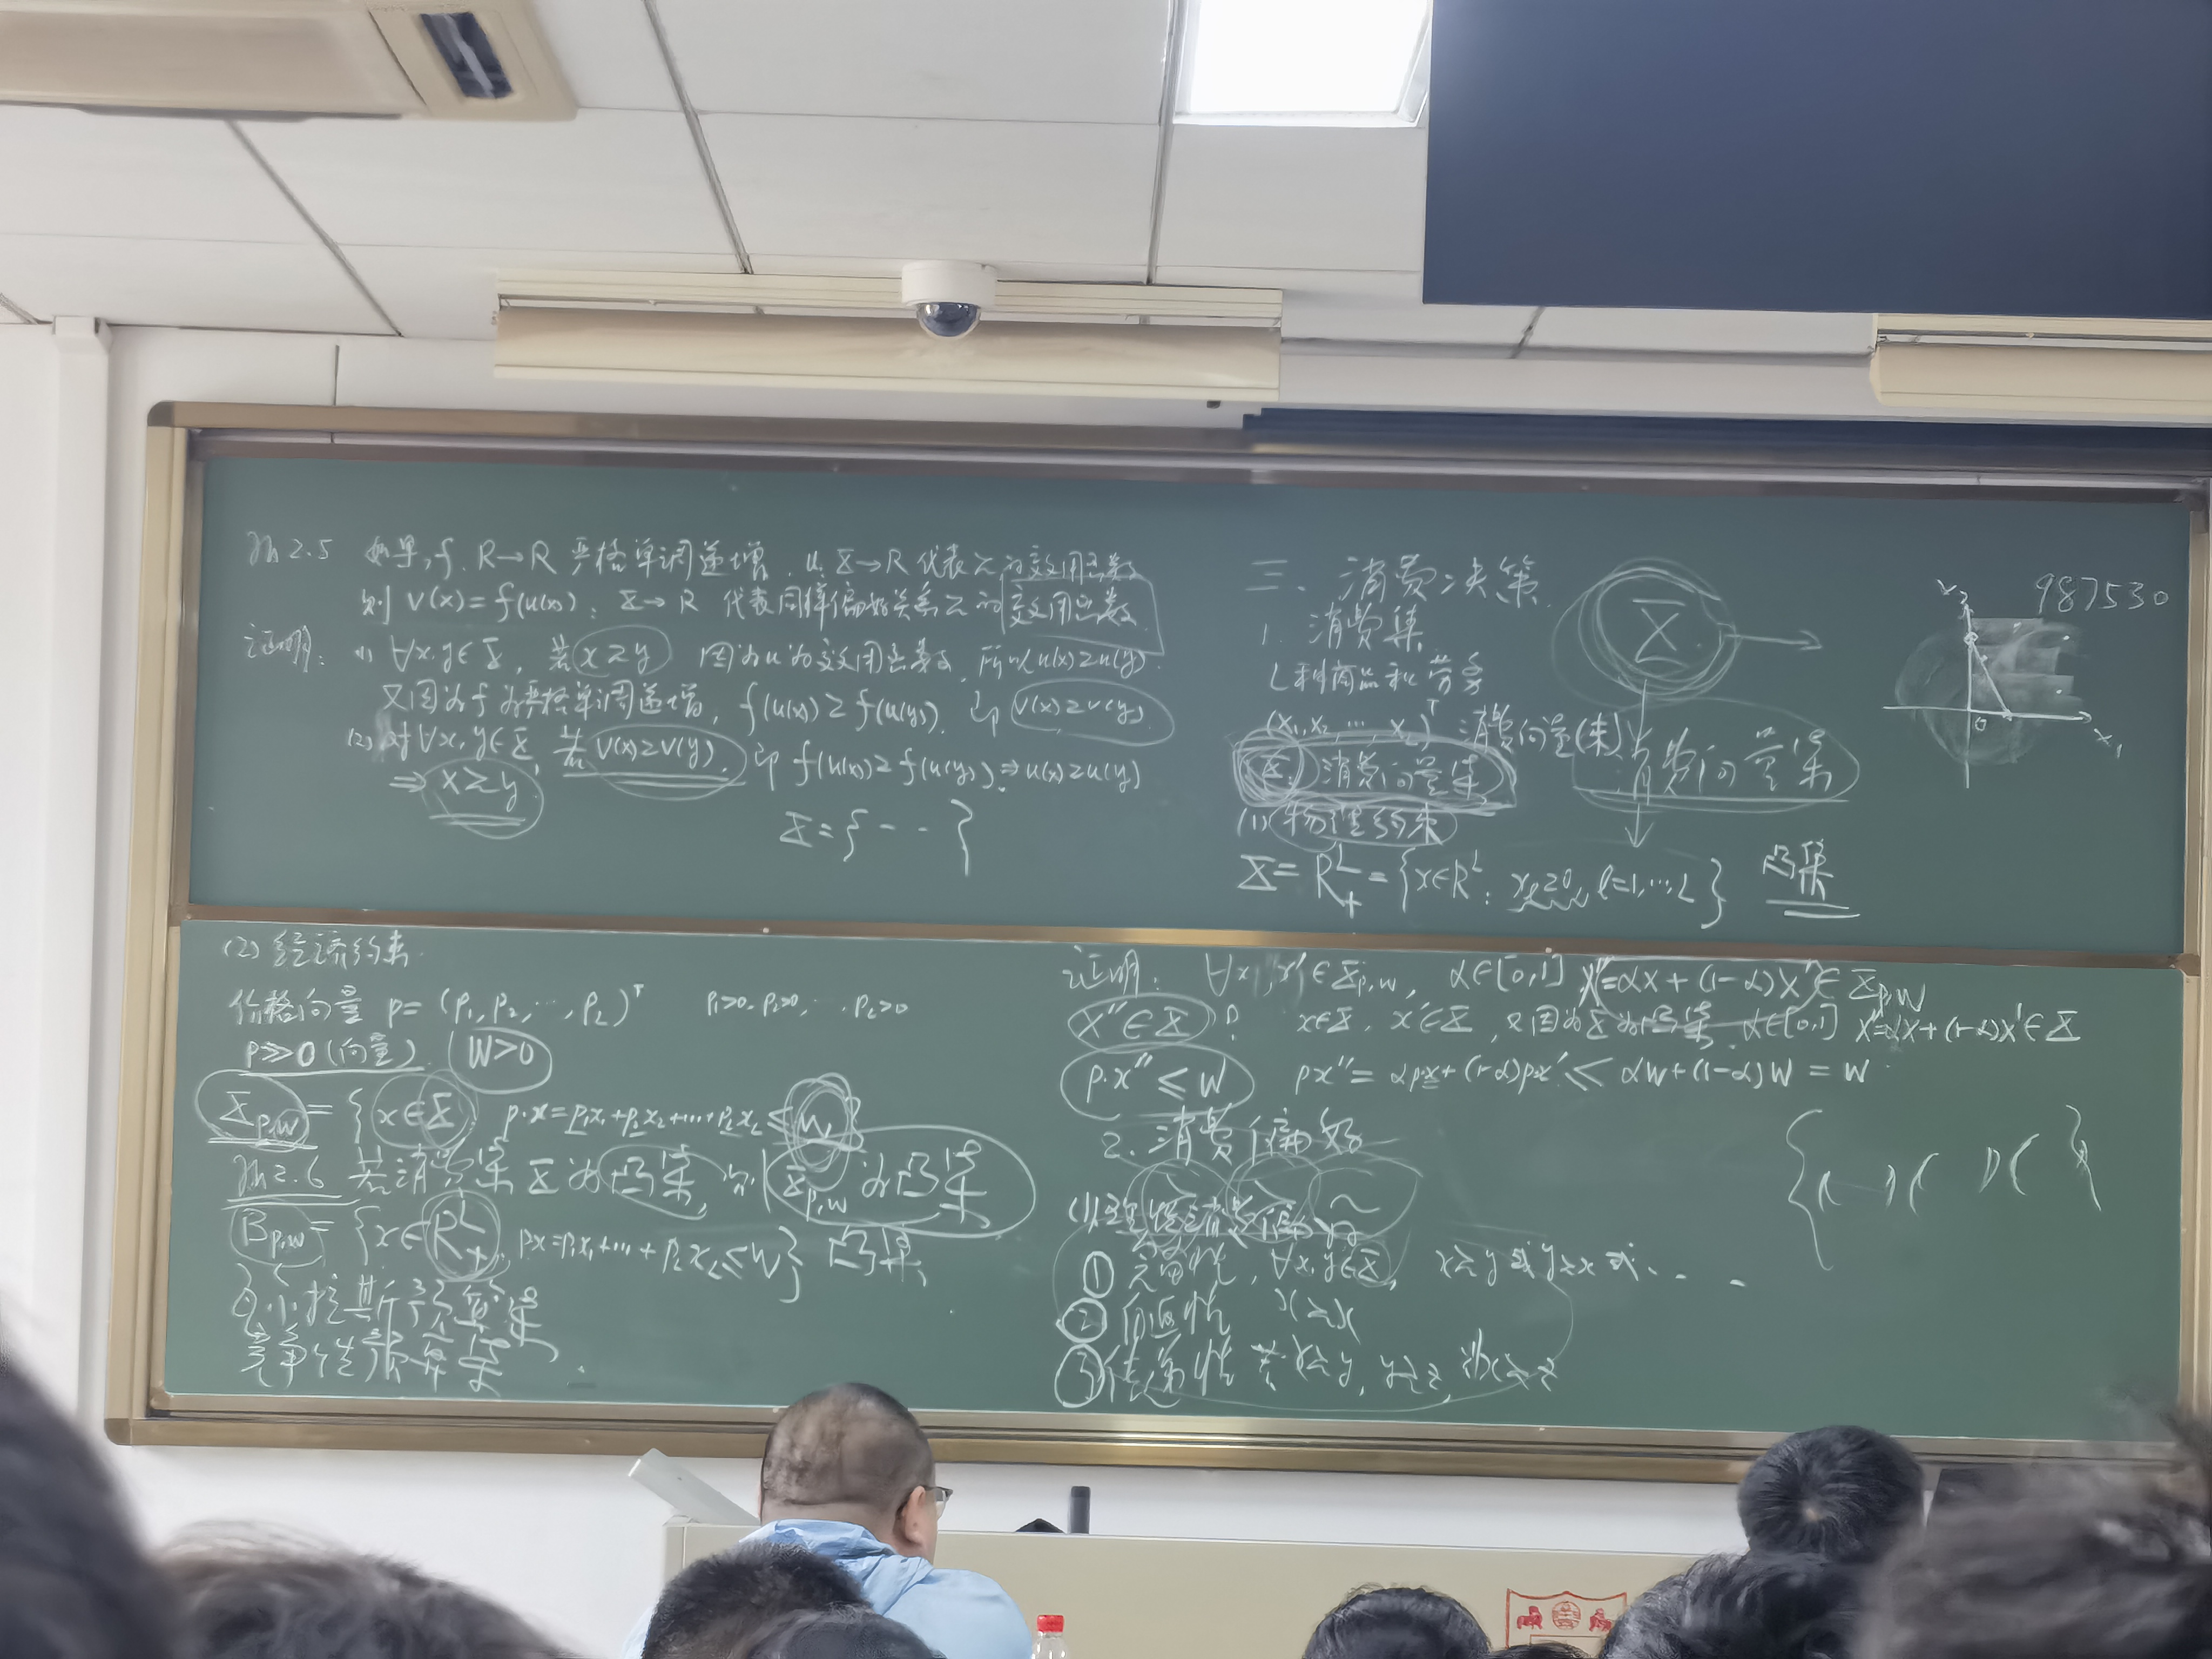 Th 2.5 如果 f: R→R 严格单调递增, u: X→R 代表≿的效用函数
则 V(x)=f(u(x)): X→R 代表同样偏好关系≿的效用函数
证明: (1) ∀x,y∈X, 若x≿y 因为u为效用函数, 所以u(x)≥u(y).
又因为f为严格单调递增, f(u(x))≥f(u(y)). 即 V(x)≥V(y).
(2) 对∀x,y∈X, 若V(x)≥V(y). 即 f(u(x))≥f(u(y)) ⇒ u(x)≥u(y)
⇒ x≿y
X={ - - - }
三、消费决策
1. 消费集
L种商品和劳务
(x₁,x₂, ..., x_L)ᵀ 消费向量(束)
X: 消费向量集
(1) 物理约束
X=R₊ᴸ={x∈Rᴸ: x_ℓ≥0, ℓ=1,...,L} 凸集
X
消费向量集
987530
x₂
0
x₁
(2) 经济约束
价格向量 p=(p₁,p₂,...,p_L)ᵀ p₁>0, p₂>0, ..., p_L>0
p≫0(向量) W>0
X_{p,w}={x∈X p·x=p₁x₁+p₂x₂+...+p_Lx_L≤w}
Th 2.6 若消费集X为凸集, 则X_{p,w}为凸集
B_{p,w}={x∈R₊ᴸ, px=p₁x₁+...+p_Lx_L≤W} 凸集
瓦尔拉斯预算集
竞争性预算集
证明: ∀x,x'∈X_{p,w}, α∈[0,1] x''=αx+(1-α)x'∈X_{p,w}
x''∈X? x∈X, x'∈X, 又因为X为凸集, α∈[0,1] x''=αx+(1-α)x'∈X
p·x''≤W px''=αpx+(1-α)px'≤αW+(1-α)W=W
2. 消费偏好
(1) 理性消费偏好
① 完备性, ∀x,y∈X, x≿y或y≿x或...
② 自返性 x≿x
③ 传递性 若x≿y, y≿z, 则x≿z